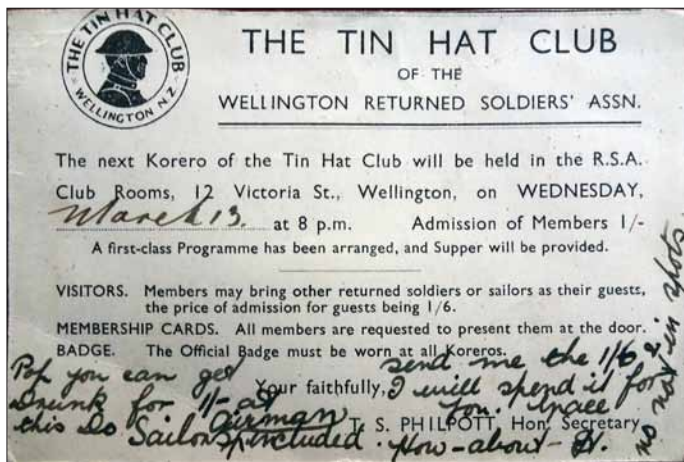 THE TIN HAT CLUB
WELLINGTON N.Z.
THE TIN HAT CLUB
OF THE
WELLINGTON RETURNED SOLDIERS' ASSN.
The next Korero of the Tin Hat Club will be held in the R.S.A.
Club Rooms, 12 Victoria St., Wellington, on WEDNESDAY,
March 13. at 8 p.m. Admission of Members 1/-
A first-class Programme has been arranged, and Supper will be provided.
VISITORS. Members may bring other returned soldiers or sailors as their guests,
the price of admission for guests being 1/6.
MEMBERSHIP CARDS. All members are requested to present them at the door.
BADGE. The Official Badge must be worn at all Koreros.
Your faithfully,
T. S. PHILPOTT, Hon. Secretary
Pop you can get
drunk for 1/- at
this Do Sailors
Airman included.
send me the 1/6 &
I will spend it for
you.
How-about-
no not in spots